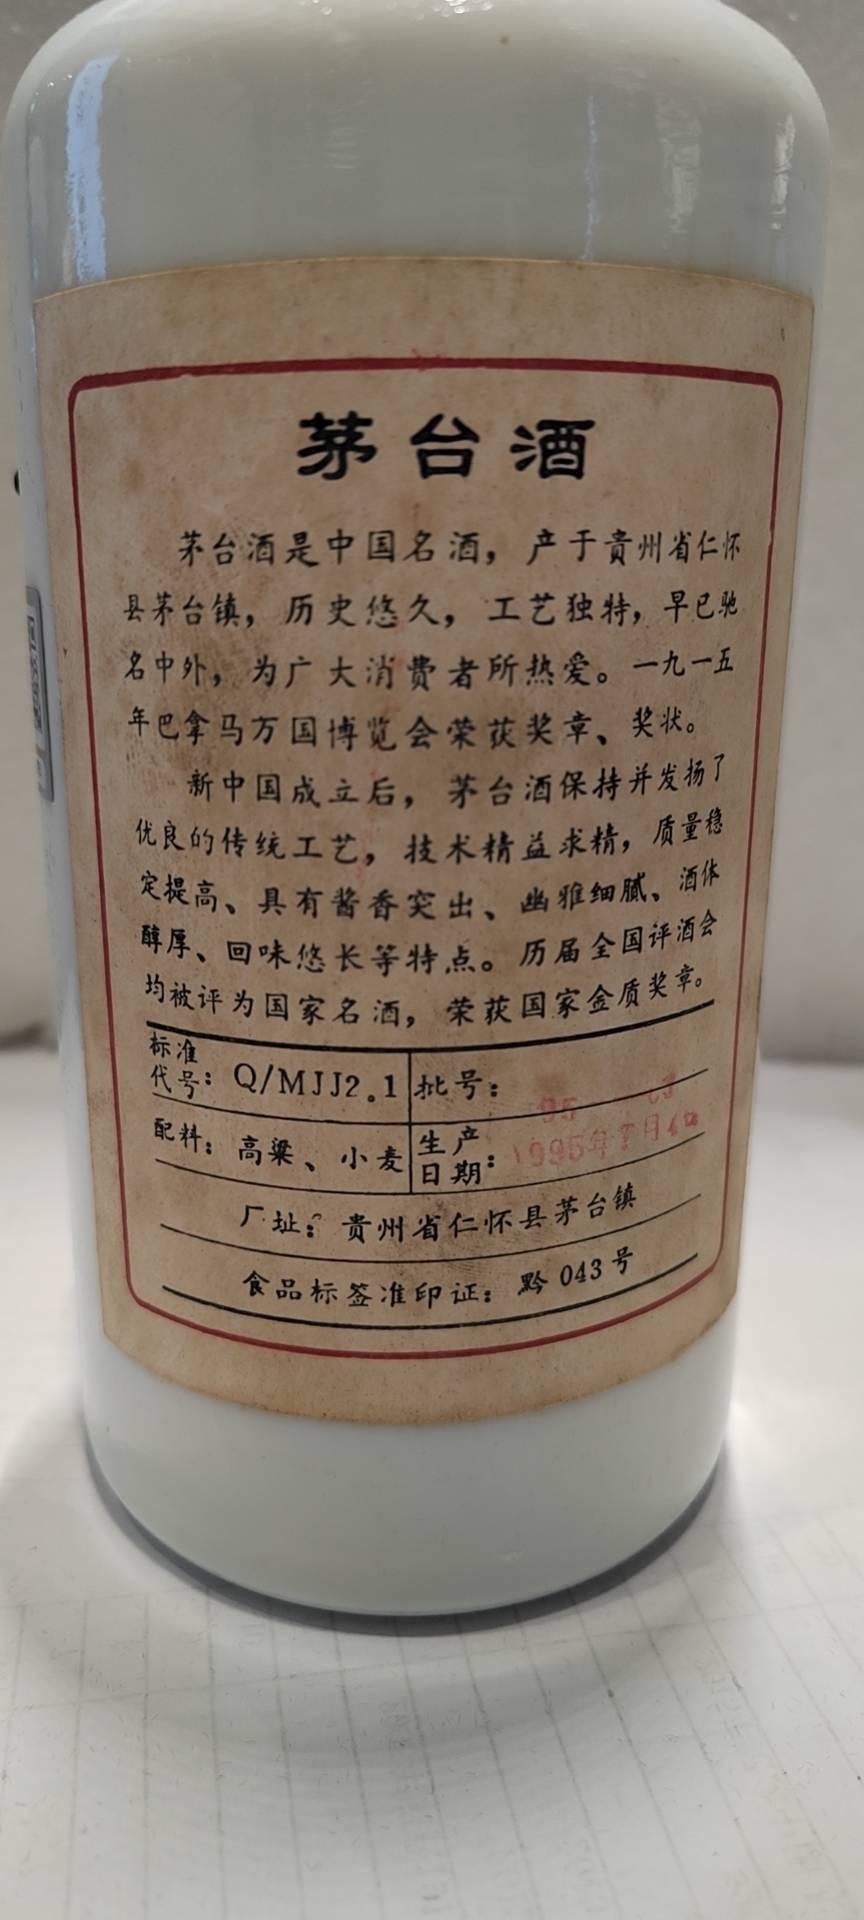 茅台酒
茅台酒是中国名酒，产于贵州省仁怀
县茅台镇，历史悠久，工艺独特，早已驰
名中外，为广大消费者所热爱。一九一五
年巴拿马万国博览会荣获奖章、奖状。
新中国成立后，茅台酒保持并发扬了
优良的传统工艺，技术精益求精，质量稳
定提高、具有酱香突出、幽雅细腻、酒体
醇厚、回味悠长等特点。历届全国评酒会
均被评为国家名酒，荣获国家金质奖章。
标准
代号：Q/MJJ2.1
批号：95
配料：高粱、小麦
生产
日期：1995年 月
厂址：贵州省仁怀县茅台镇
食品标签准印证：黔043号